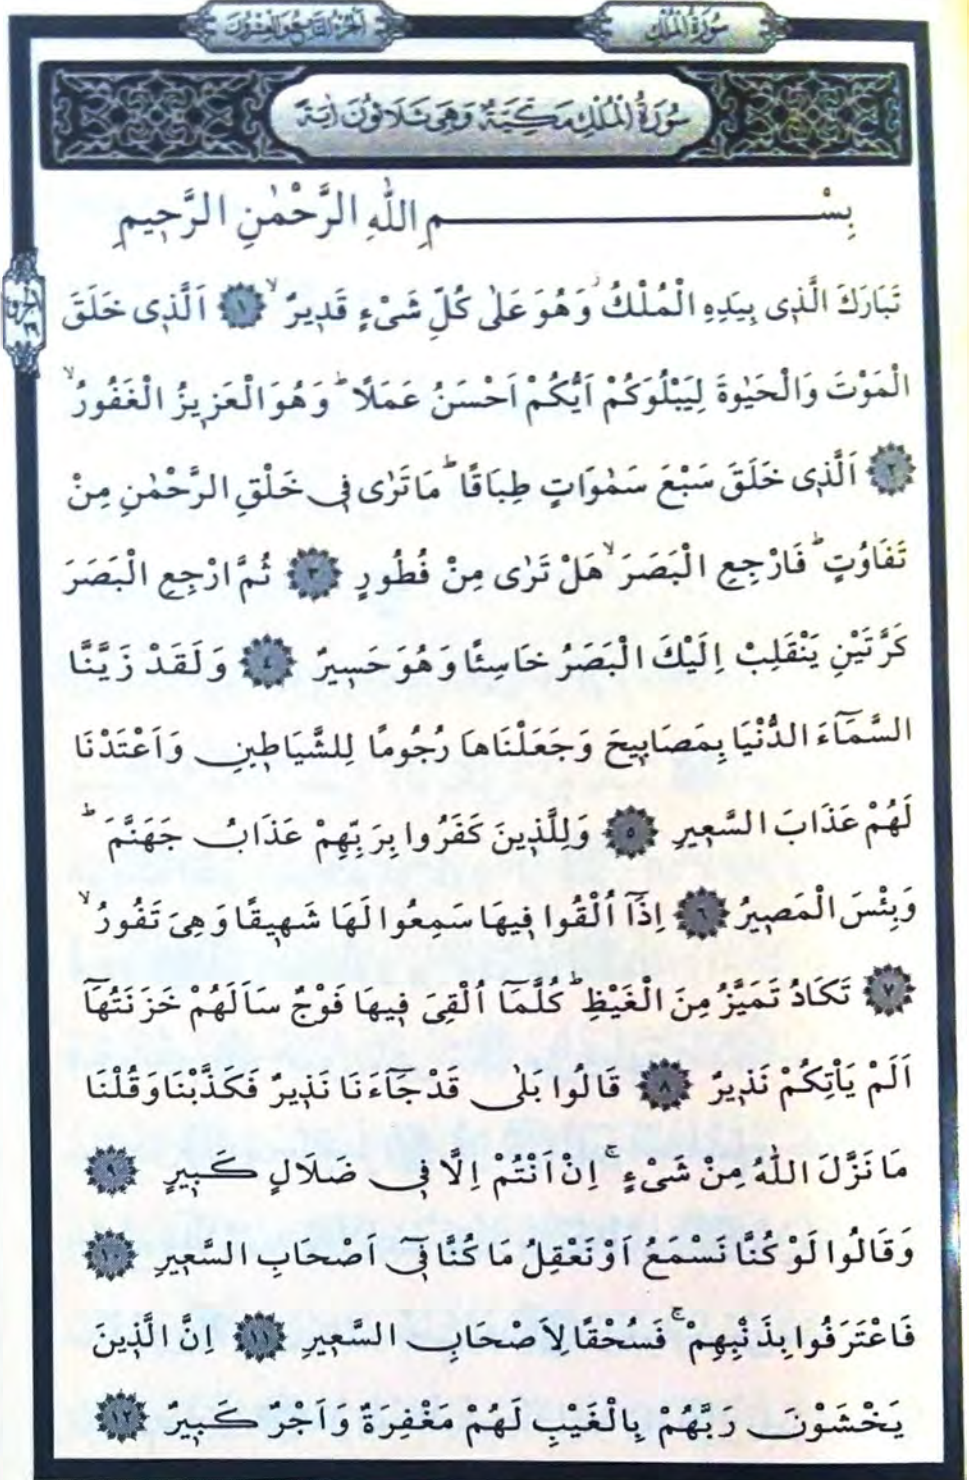 سُورَةُ الْمُلْكِ
اَلْجُزْءُ التَّاسِعُ وَالْعِشْرُونَ
سُورَةُ الْمُلْكِ مَكِّيَّةٌ وَهِىَ ثَلَاثُونَ اٰيَةً
بِسْمِ اللّٰهِ الرَّحْمٰنِ الرَّحٖيمِ
الجزء ٢٩
تَبَارَكَ الَّذٖى بِيَدِهِ الْمُلْكُؗ وَهُوَ عَلٰى كُلِّ شَىْءٍ قَدٖيرٌۙ ﴿١﴾ اَلَّذٖى خَلَقَ
الْمَوْتَ وَالْحَيٰوةَ لِيَبْلُوَكُمْ اَيُّكُمْ اَحْسَنُ عَمَلًاؕ وَهُوَ الْعَزٖيزُ الْغَفُورُۙ
﴿٢﴾ اَلَّذٖى خَلَقَ سَبْعَ سَمٰوَاتٍ طِبَاقًاؕ مَا تَرٰى فٖى خَلْقِ الرَّحْمٰنِ مِنْ
تَفَاوُتٍؕ فَارْجِعِ الْبَصَرَۙ هَلْ تَرٰى مِنْ فُطُورٍ ﴿٣﴾ ثُمَّ ارْجِعِ الْبَصَرَ
كَرَّتَيْنِ يَنْقَلِبْ اِلَيْكَ الْبَصَرُ خَاسِئًا وَهُوَ حَسٖيرٌ ﴿٤﴾ وَلَقَدْ زَيَّنَّا
السَّمَٓاءَ الدُّنْيَا بِمَصَابٖيحَ وَجَعَلْنَاهَا رُجُومًا لِلشَّيَاطٖينِ وَاَعْتَدْنَا
لَهُمْ عَذَابَ السَّعٖيرِ ﴿٥﴾ وَلِلَّذٖينَ كَفَرُوا بِرَبِّهِمْ عَذَابُ جَهَنَّمَؕ
وَبِئْسَ الْمَصٖيرُ ﴿٦﴾ اِذَٓا اُلْقُوا فٖيهَا سَمِعُوا لَهَا شَهٖيقًا وَهِىَ تَفُورُۙ
﴿٧﴾ تَكَادُ تَمَيَّزُ مِنَ الْغَيْظِؕ كُلَّمَٓا اُلْقِىَ فٖيهَا فَوْجٌ سَاَلَهُمْ خَزَنَتُهَٓا
اَلَمْ يَاْتِكُمْ نَذٖيرٌ ﴿٨﴾ قَالُوا بَلٰى قَدْ جَٓاءَنَا نَذٖيرٌ فَكَذَّبْنَا وَقُلْنَا
مَا نَزَّلَ اللّٰهُ مِنْ شَىْءٍۚ اِنْ اَنْتُمْ اِلَّا فٖى ضَلَالٍ كَبٖيرٍ ﴿٩﴾
وَقَالُوا لَوْ كُنَّا نَسْمَعُ اَوْ نَعْقِلُ مَا كُنَّا فٖٓى اَصْحَابِ السَّعٖيرِ ﴿١٠﴾
فَاعْتَرَفُوا بِذَنْبِهِمْۚ فَسُحْقًا لِاَصْحَابِ السَّعٖيرِ ﴿١١﴾ اِنَّ الَّذٖينَ
يَخْشَوْنَ رَبَّهُمْ بِالْغَيْبِ لَهُمْ مَغْفِرَةٌ وَاَجْرٌ كَبٖيرٌ ﴿١٢﴾